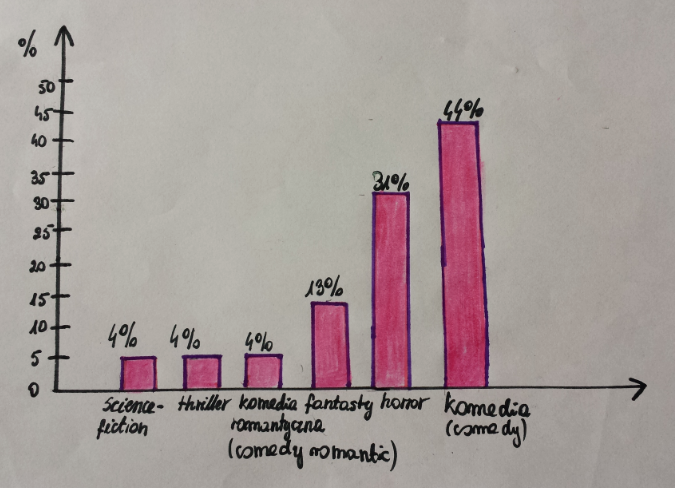 %
50
45
40
35
30
25
20
15
10
5
0
4%
4%
4%
13%
31%
44%
science-
fiction
thriller
komedia
romantyczna
(comedy romantic)
fantasty
horror
komedia
(comedy)